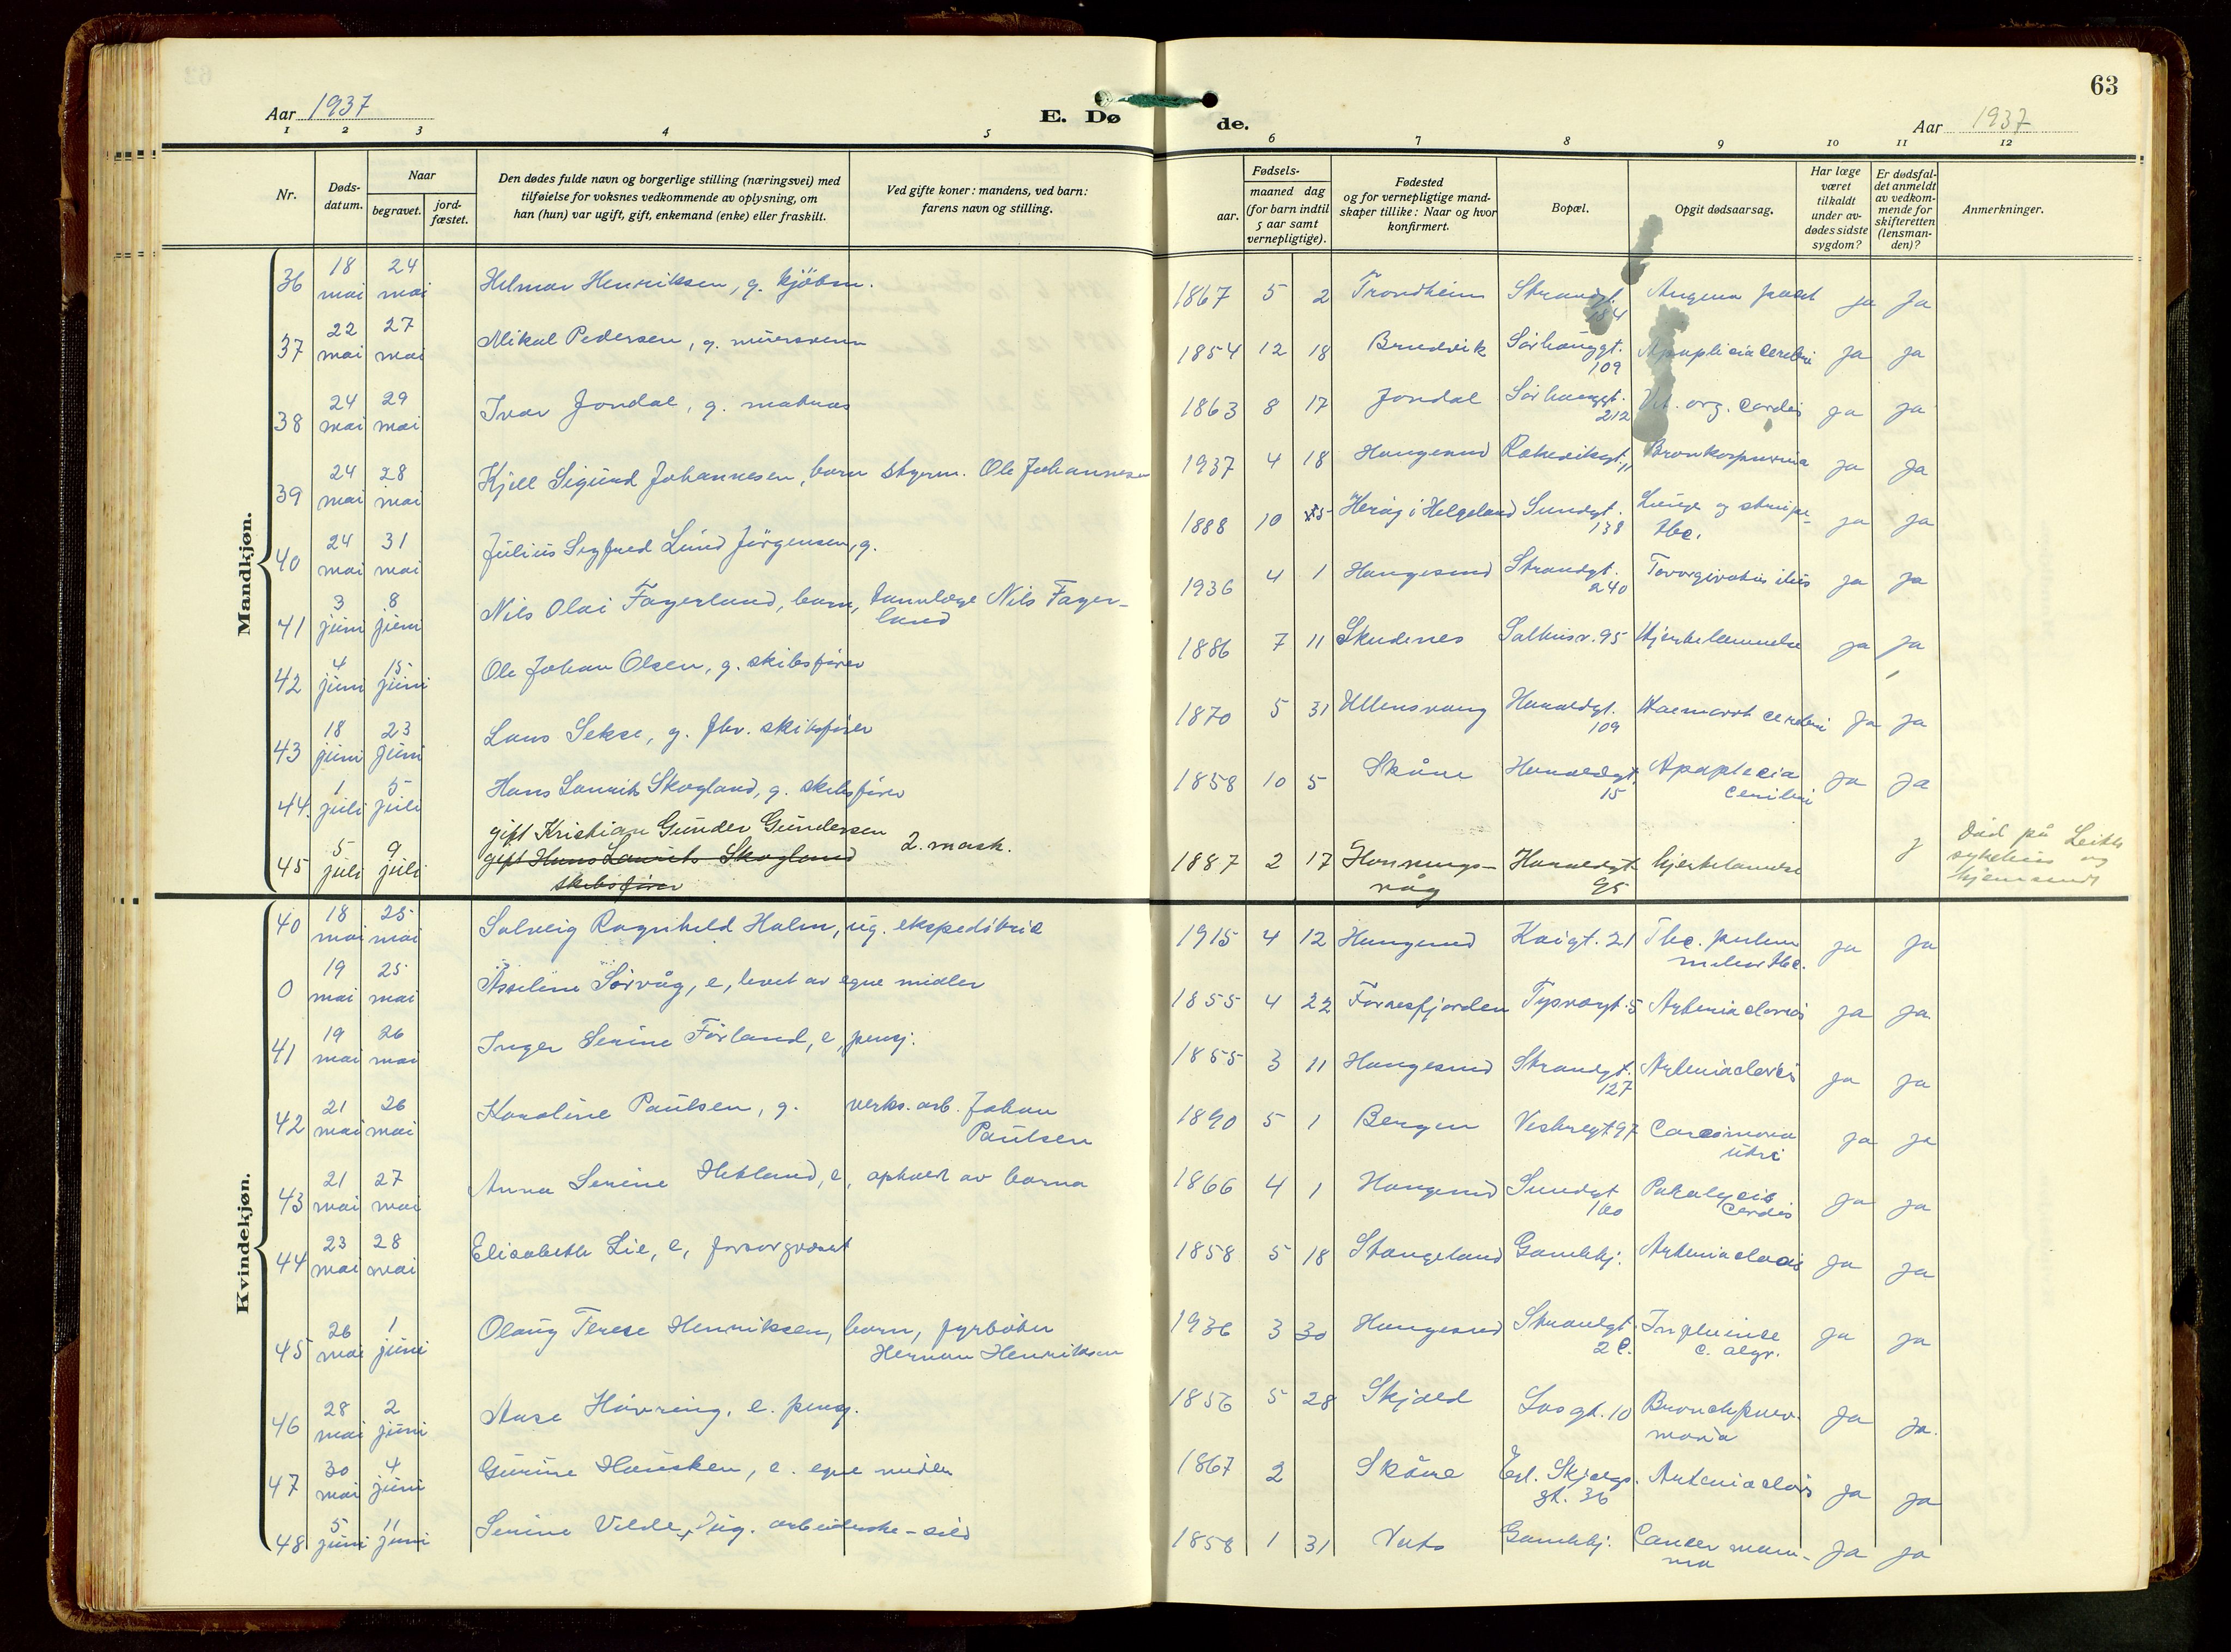 63
Aar 1937
E. Dø
de.
Aar 1937
1 2 3 4 5 6 7 8 9 10 11 12
Nr.
Døds-
datum.
Naar
begravet.
jord-
fæstet.
Den dødes fulde navn og borgerlige stilling (næringsvei) med
tilføielse for voksnes vedkommende av oplysning, om
han (hun) var ugift, gift, enkemand (enke) eller fraskilt.
Ved gifte koner: mandens, ved barn:
farens navn og stilling.
Fødsels-
aar.
maaned dag
(for barn indtil
5 aar samt
vernepligtige).
Fødested
og for vernepligtige mand-
skaper tillike: Naar og hvor
konfirmert.
Bopæl.
Opgit dødsaarsag.
Har læge
været
tilkaldt
under av-
dødes sidste
sygdom?
Er dødsfal-
det anmeldt
av vedkom-
mende for
skifteretten
(lensman-
den)?
Anmerkninger.
Mandkjøn.
36 18 mai 24 mai Helmar Henriksen, g. kjöbm. 1867 5 2 Trondheim Strandgt. Angina ja ja
37 22 mai 27 mai Mikal Pedersen, g. mürersvenn 1854 12 18 Bruvik Sörhauggt. 109 cerebri ja ja
38 24 mai 29 mai Ivar Jondal, g. matros 1863 8 17 Jondal Sörhauggt. 212 Vit. org. cordis ja ja
39 24 mai 28 mai Kjell Sigurd Johannesen, barn styrm. Ole Johannesen 1937 4 18 Haugesund ja ja
40 24 mai 31 mai Julius Sigfred Lund Jörgensen, g. 1888 10 Heröy i Helgeland Sundgt. 138 Lunge og strupe-
tbc. ja ja
41 3 juni 8 juni Nils Olai Fagerland, barn, tannlæge Nils Fager-
land 1936 4 1 Haugesund Strandgt. 240 ja ja
42 4 juni 15 juni Ole Johan Olsen, g. skibsförer 1886 7 11 Skudenes Salhusv. 95 Hjertelammelse ja ja
43 18 juni 23 juni Lars Sekse, g. fhv. skibsförer 1870 5 31 Ullensvang Haraldgt. 109 Haemorrh cerebri ja ja
44. 1 juli 5 juli Hans Laurits Skogland, g. skibsförer 1858 10 5 Skåre Haraldgt. 15 Apoplecia
cerebri ja ja
45 5 juli 9 juli gift Kristian Gunder Gundersen 2. mask. 1887 2 17 Honnings-
våg Haraldgt. 95 hjertelamelse j Död på
sykehus og
hjemsendt
gift Hans Laurits Skogland
skibsförer
Kvindekjøn.
40 18 mai 25 mai Solveig Ragnhild Holm, ug. ekspeditrice 1915 4 12 Haugesund Kaigt. 21 Tbc. pulm
ja ja
0 19 mai 25 mai Asseline Sörvåg, e, levet av egne midler 1855 4 22 Förresfjorden Tysværgt. 5 ja ja
41 19 mai 26 mai Inger Serine Förland, e, pensj. 1855 3 11 Haugesund Strandgt. 127 ja ja
42 21 mai 26 mai Karoline Paulsen, g. verks. arb. Johan
Paulsen 1890 5 1 Bergen Vestregt. 97 Carcinoma
uteri ja ja
43 21 mai 27 mai Anna Serine Hetland, e, ophold av barna 1866 4 1 Haugesund Sundgt 160 Paralysis
cordis ja ja
44 23 mai 28 mai Elisabeth Lie, e, forsorgvæset 1858 5 18 Stangeland Gamlehj. ja ja
45 26 mai 1 juni Olaug Terese Henriksen, barn, fyrböter
Herman Henriksen 1936 3 30 Haugesund Strandgt. 2 C. ja ja
46 28 mai 2 juni Anse Hövring, e. pensj. 1856 5 28 Skjold 10 Bronchpnev-
monia ja ja.
47 30 mai 4 juni Gurine Hausken, e. egne midler 1867 2 Skåre Erl. Skjalgs.
gt. 36 ja ja
48 5 juni 11 juni Serine Velde, ug. arbeiderske - sild 1858 1 31 Vats Gamlehj. Cancer mam-
ma ja ja